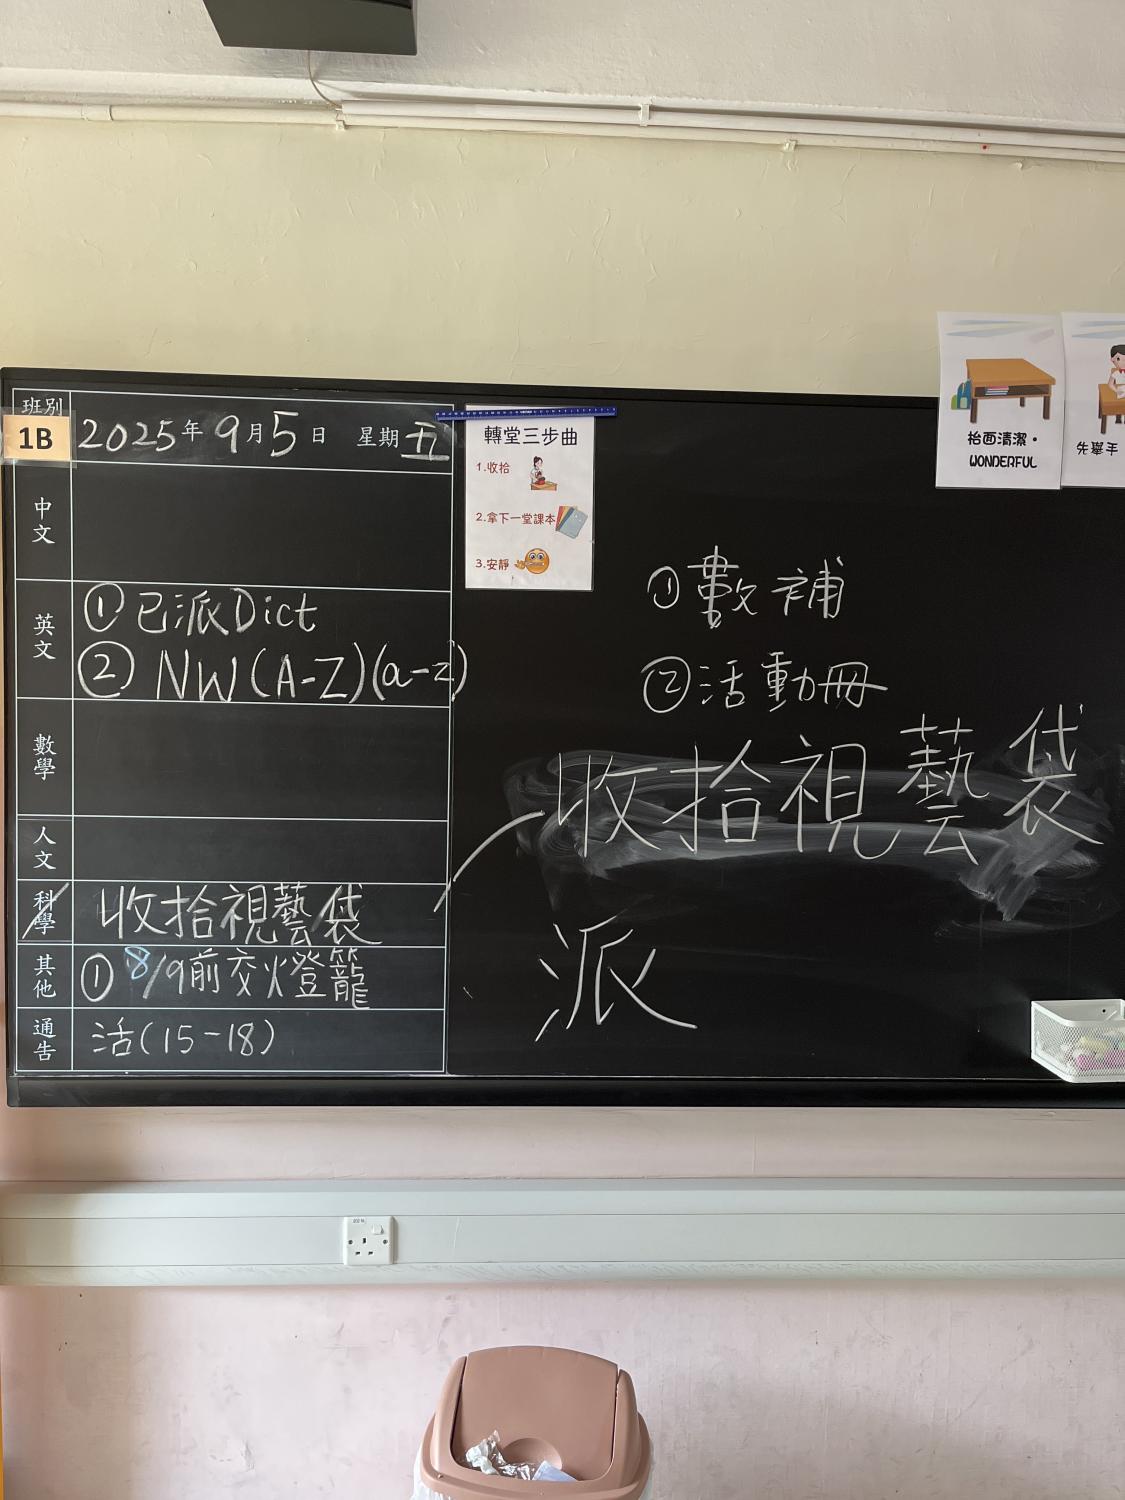 班別
1B
2025年9月5日 星期五
中文
英文
①已派Dict
②NW(A-Z)(a-z)
數學
人文
科學
收拾視藝袋
其他
①8/9前交火燈籠
通告
活(15-18)
轉堂三步曲
1.收拾
2.拿下一堂課本
3.安靜
枱面清潔。
WONDERFUL
先舉手
①數補
②活動冊
收拾視藝袋
派